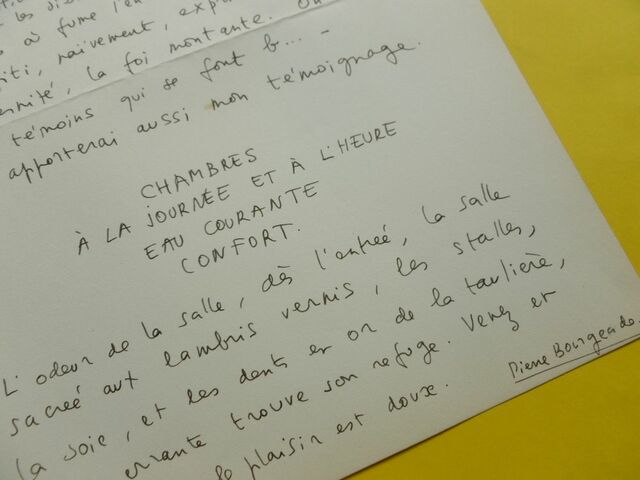 les
à fumé l'en
iti, naïvement, exp
ernité, la foi montante. On
témoins qui se font b... -
apporterai aussi mon témoignage.
CHAMBRES
À LA JOURNÉE ET À L'HEURE
EAU COURANTE
CONFORT.
L'odeur de la salle, dès l'entrée, la salle
sacrée aux lambris vernis, les stalles,
la soie, et les dents en or de la taulière,
errante trouve son refuge. Venez et
le plaisir est doux.
Pierre Bourgeade.